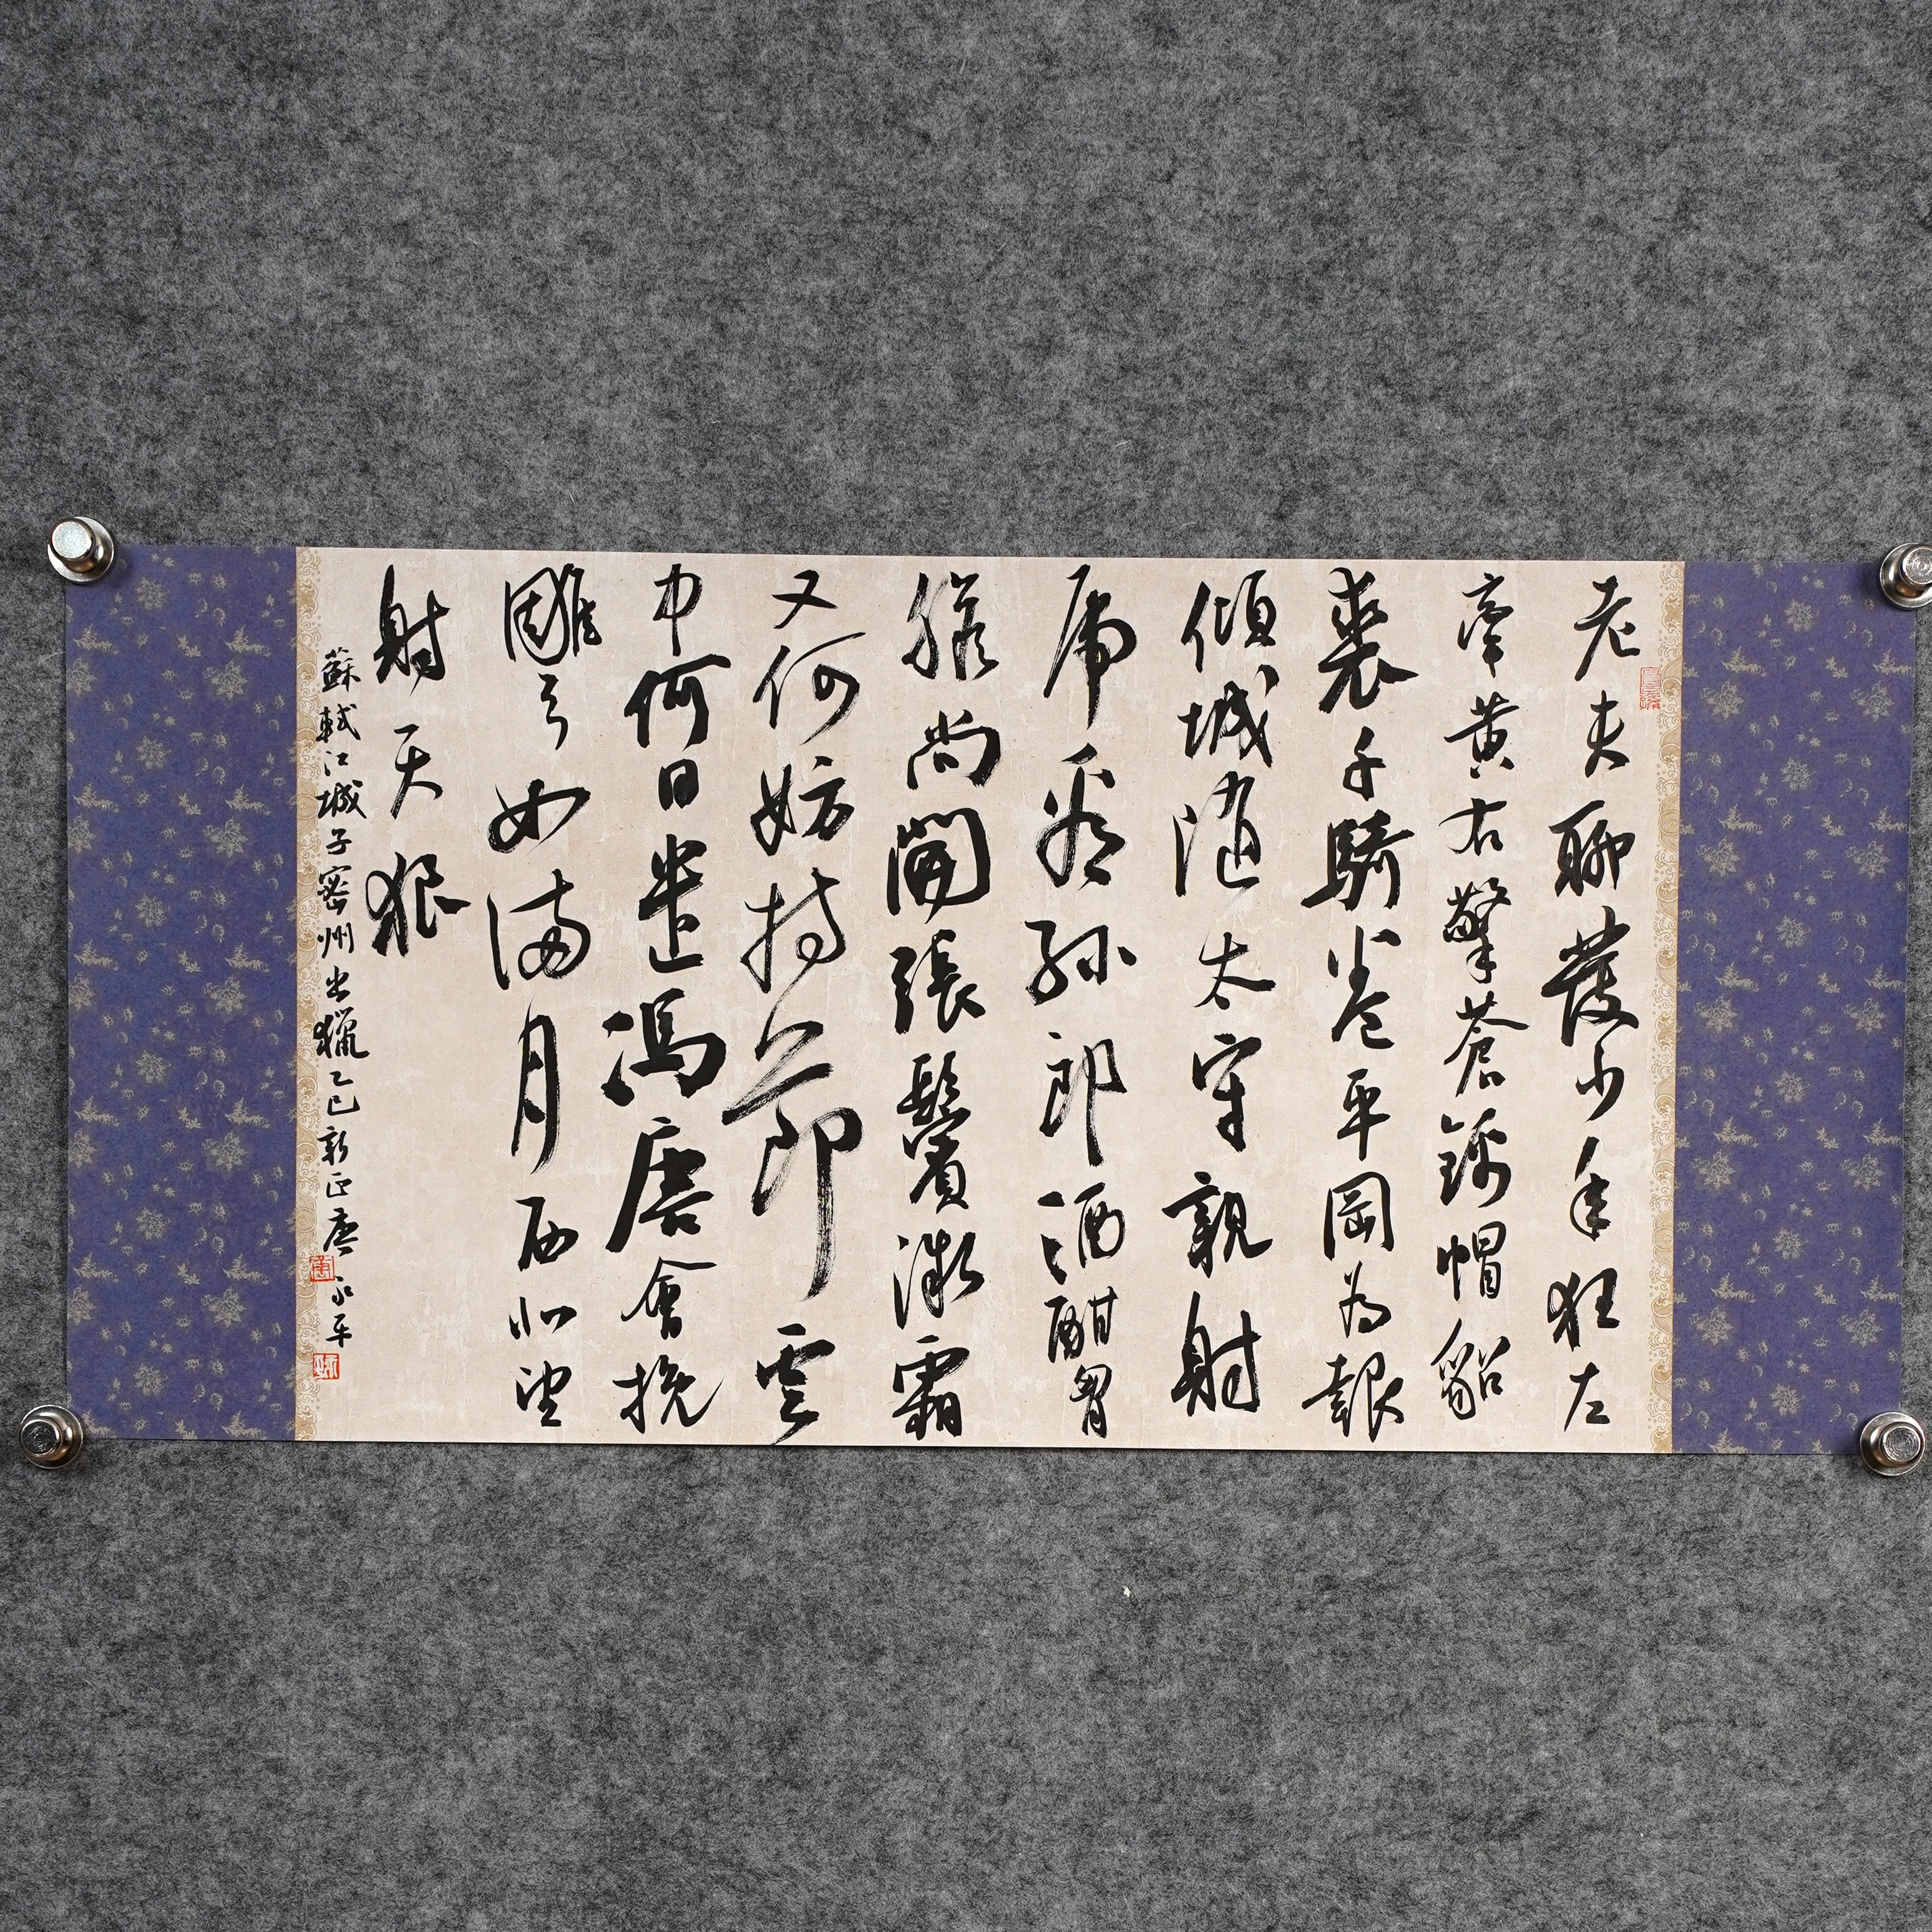 老夫聊發少年狂左
牽黃右擎蒼錦帽貂
裘千騎卷平岡為報
傾城隨太守親射
虎看孫郎酒酣胷
膽尚開張鬢微霜
又何妨持節雲
中何日遣馮唐會挽
雕弓如滿月西北望
射天狼
蘇軾江城子密州出獵乙巳新正唐永平